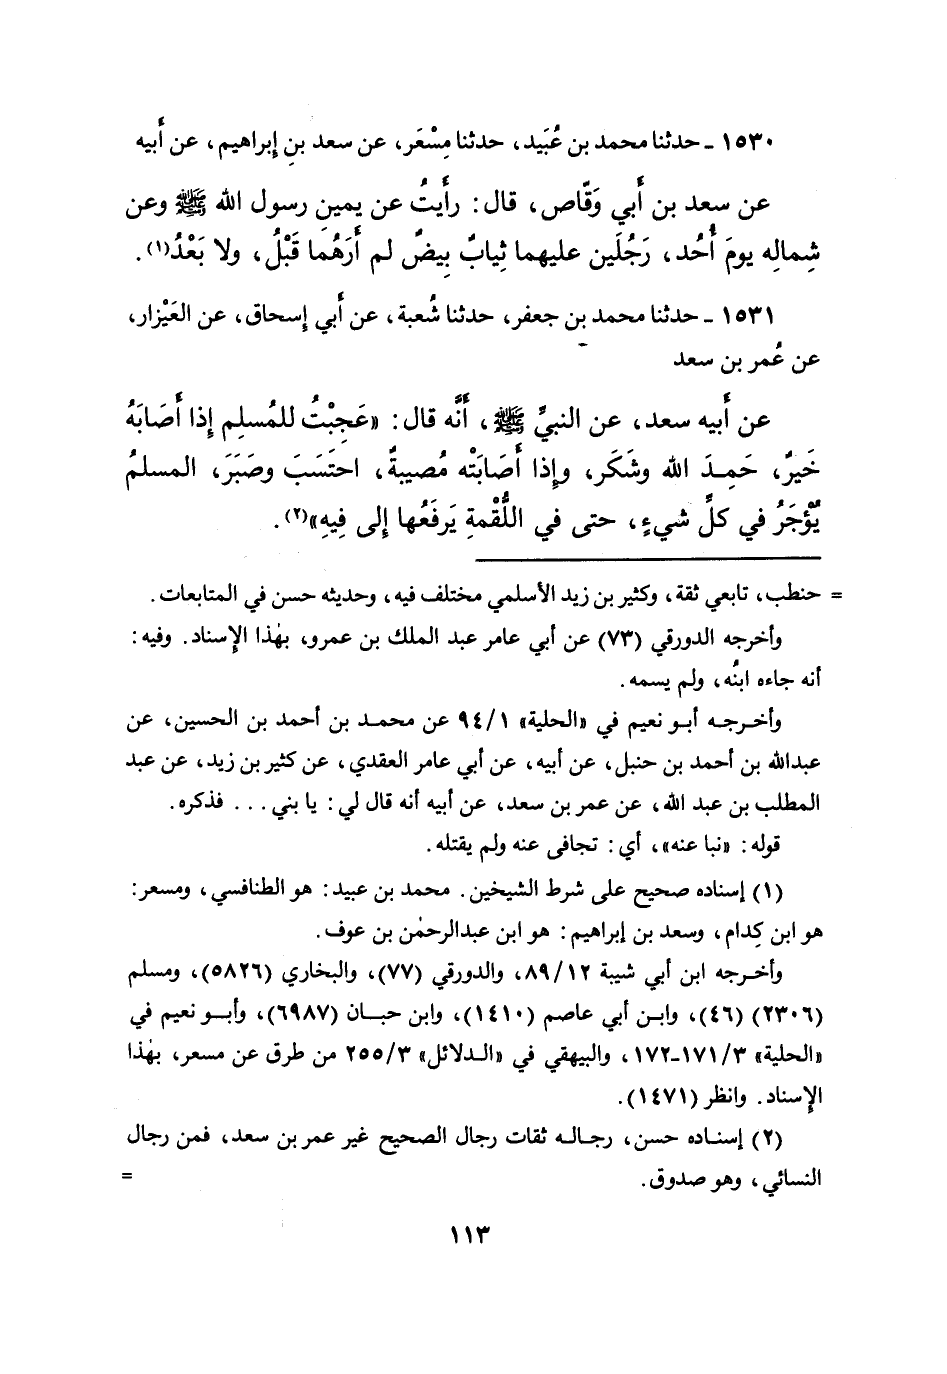 ١٥٣٠ ـ حدثنا محمد بن عُبَيد، حدثنا مِسْعَر، عن سعد بنِ إبراهيم، عن أبيه
عن سعد بن أبي وَقّاص، قال: رأيتُ عن يمينِ رسول الله ﷺ وعن
شِمالِه يومَ أُحُد، رَجُلَين عليهما ثِيابٌ بِيضٌ لم أَرَهُما قَبْلُ، ولا بَعْدُ(١).
١٥٣١ ـ حدثنا محمد بن جعفر، حدثنا شُعبة، عن أبي إسحاق، عن العَيْزار،
عن عُمر بن سعد
عن أبيه سعد، عن النبيِّ ﷺ، أنَّه قال: «عَجِبْتُ للمُسلِم إذا أَصَابَهُ
خَيرٌ، حَمِدَ الله وشَكَر، وإذا أَصَابَتْه مُصيبةٌ، احتَسَبَ وصَبَرَ، المسلمُ
يُؤْجَرُ في كلِّ شيءٍ، حتى في اللُّقْمةِ يَرفَعُها إلى فِيهِ»(٢).
= حنطب، تابعي ثقة، وكثير بن زيد الأسلمي مختلف فيه، وحديثه حسن في المتابعات.
وأخرجه الدورقي (٧٣) عن أبي عامر عبد الملك بن عمرو، بهٰذا الإسناد. وفيه:
أنه جاءه ابنُه، ولم يسمه.
وأخرجه أبو نعيم في «الحلية» ٩٤/١ عن محمد بن أحمد بن الحسين، عن
عبدالله بن أحمد بن حنبل، عن أبيه، عن أبي عامر العقدي، عن كثير بن زيد، عن عبد
المطلب بن عبد الله، عن عمر بن سعد، عن أبيه أنه قال لي: يا بني ... فذكره.
قوله: «نبا عنه»، أي: تجافى عنه ولم يقتله.
(١) إسناده صحيح على شرط الشيخين. محمد بن عبيد: هو الطنافسي، ومسعر:
هو ابن كِدام، وسعد بن إبراهيم: هو ابن عبدالرحمٰن بن عوف.
وأخرجه ابن أبي شيبة ٨٩/١٢، والدورقي (٧٧)، والبخاري (٥٨٢٦)، ومسلم
(٢٣٠٦) (٤٦)، وابن أبي عاصم (١٤١٠)، وابن حبان (٦٩٨٧)، وأبو نعيم في
«الحلية» ١٧١/٣-١٧٢، والبيهقي في «الدلائل» ٢٥٥/٣ من طرق عن مسعر، بهٰذا
الإسناد. وانظر (١٤٧١).
(٢) إسناده حسن، رجاله ثقات رجال الصحيح غير عمر بن سعد، فمن رجال
النسائي، وهو صدوق. =
١١٣